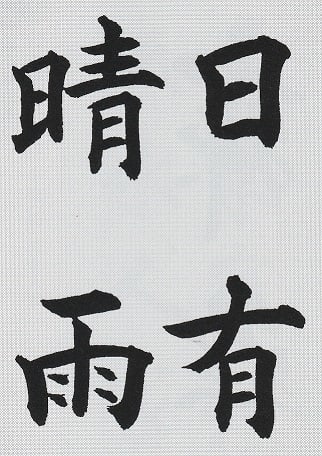 日有
晴雨